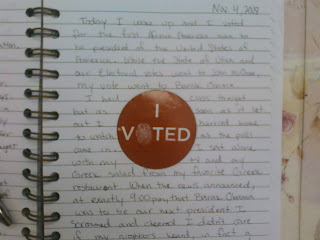 Nov 4, 2008
Today I woke up and I voted
for the first African American man to
be president of the United States of
America. While the State of Utah and
our electoral votes went to John McCain,
my vote went to Barack Obama.
I had class tonight
but as soon as it let
out I home
to watch as the polls
came in I sat alone
with my tv and my
Greek salad from my favorite Greek
restaurant. When the news announced,
at exactly 9:00 pm, that Barack Obama
was to be our next president I
screamed and cheered. I didn't care
if my neighbors heard, in fact a
I VOTED